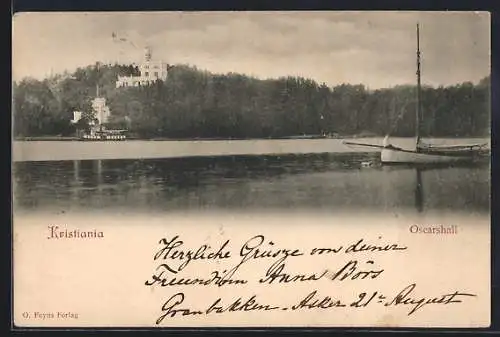 Kristiania
Oscarshall
Herzliche Grüsze von deiner
Freundin Anna Börs
Granbakken - Asker 21te August
O. Feyns Forlag